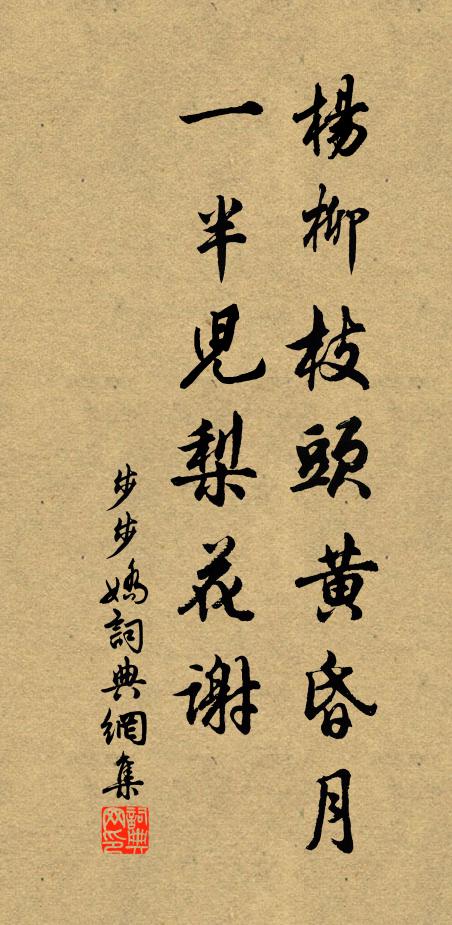 楊柳枝頭黃昏月
一半兒梨花謝
步步嬌詞典網集
詞典网印